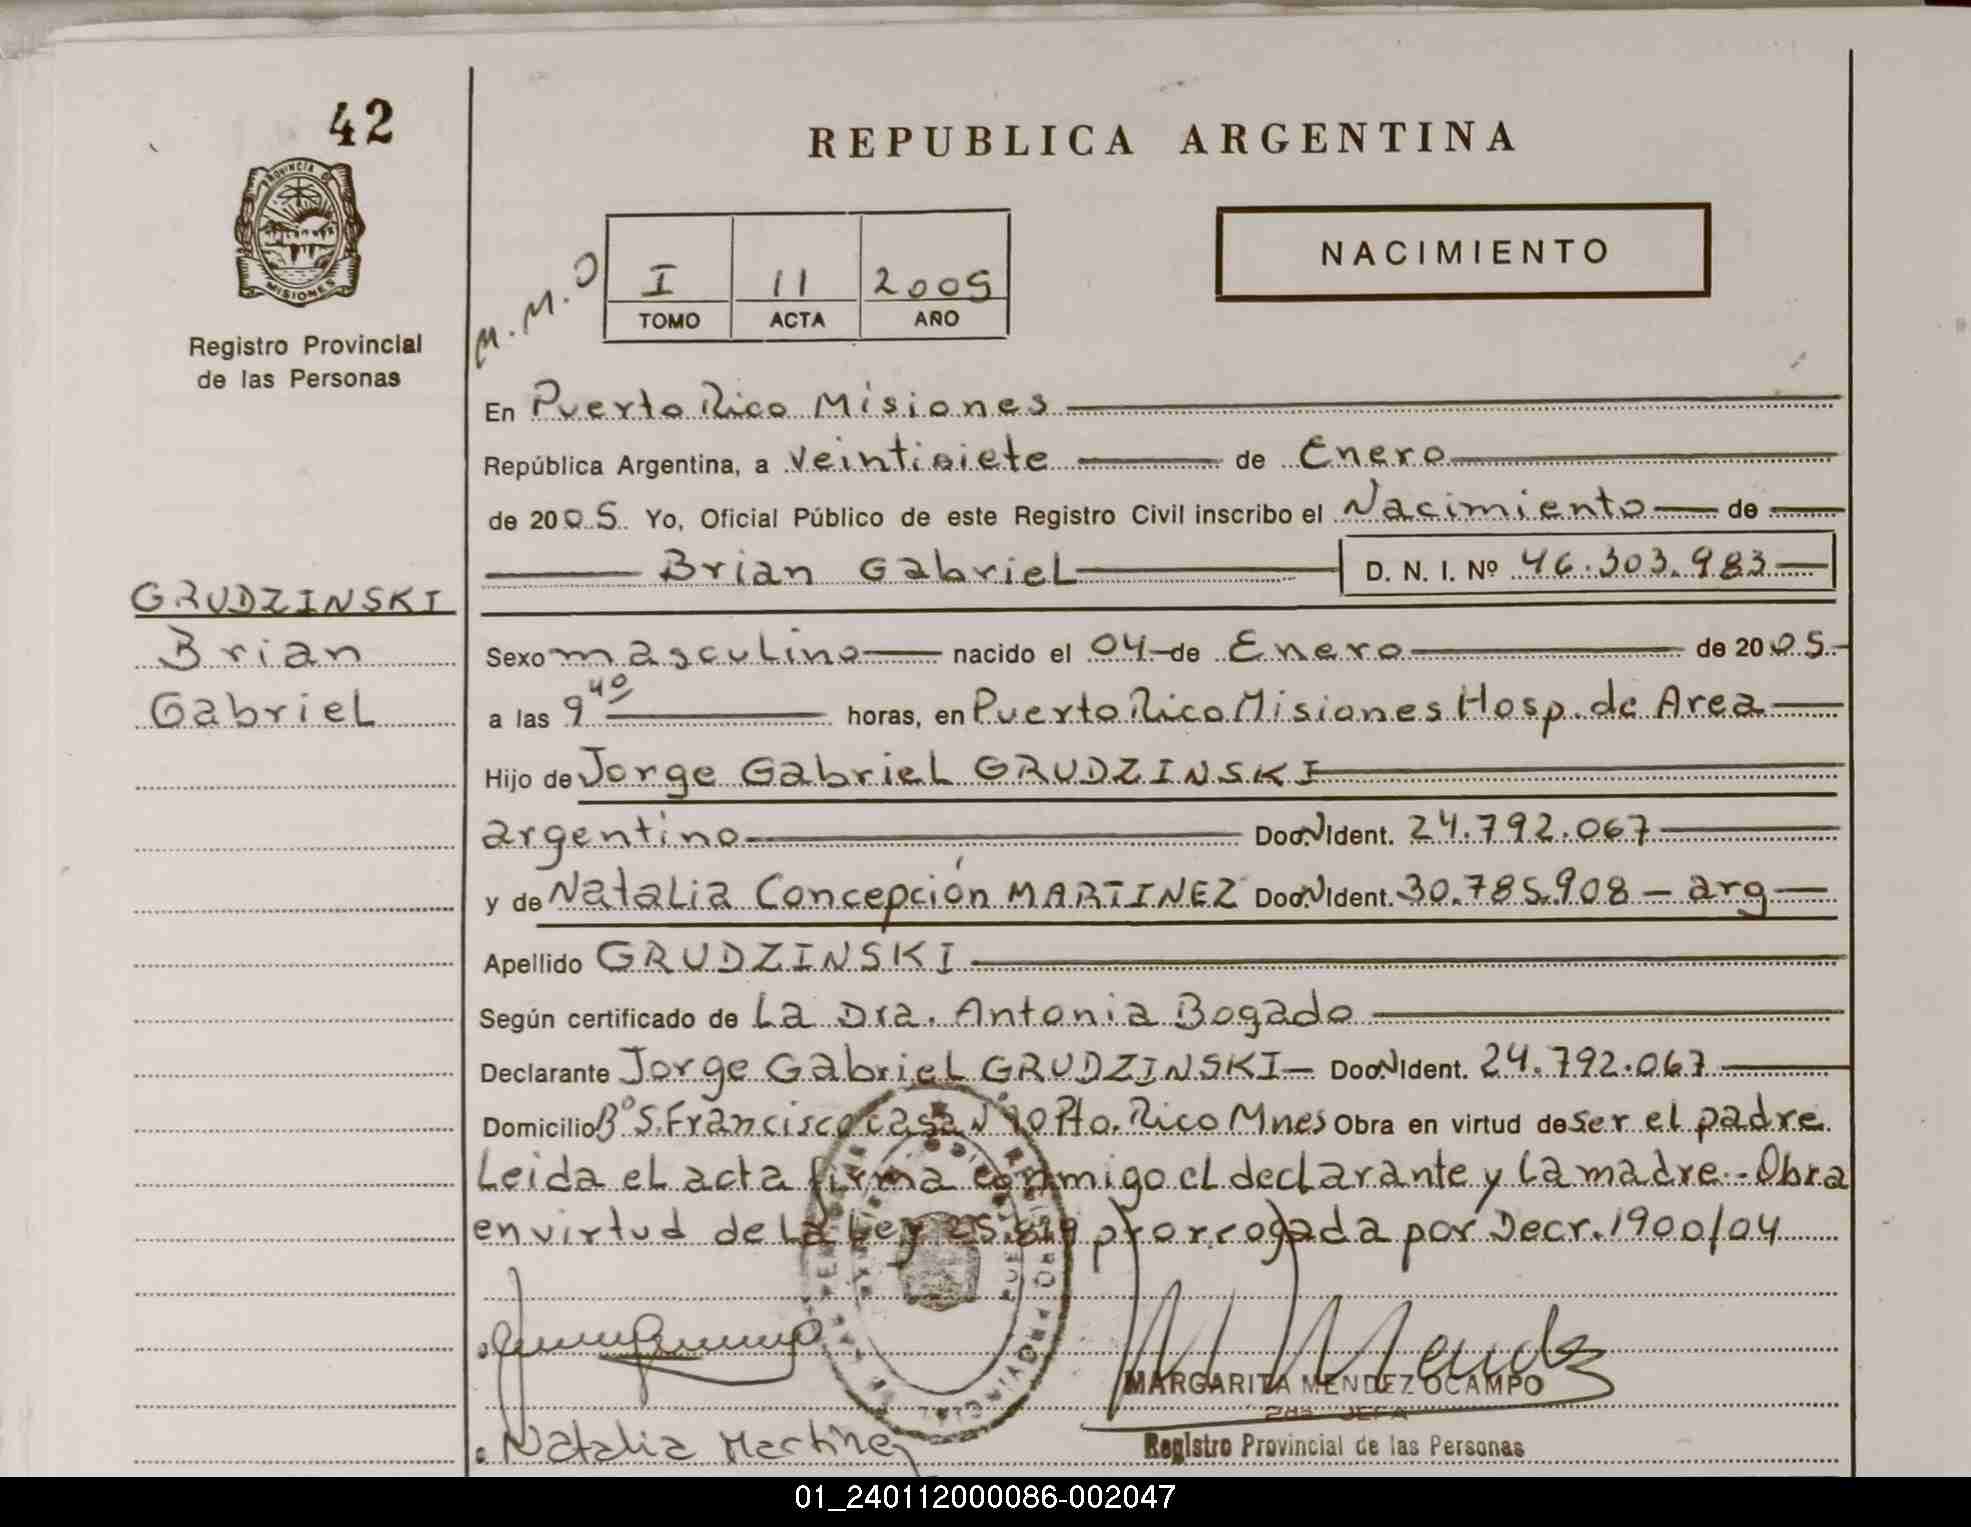 42
REPUBLICA ARGENTINA
PROVINCIA DE
MISIONES
NACIMIENTO
M.M.O
I 11 2005
TOMO ACTA AÑO
Registro Provincial
de las Personas
En Puerto Rico Misiones
República Argentina, a veintisiete de Enero
de 2005 Yo, Oficial Público de este Registro Civil inscribo el Nacimiento de
Brian Gabriel D. N. I. Nº 46.303.983
GRUDZINSKI
Brian
Gabriel
Sexo masculino nacido el 04 de Enero de 2005
a las 9 40 horas, en Puerto Rico Misiones Hosp. de Area
Hijo de Jorge Gabriel GRUDZINSKI
argentino Doc.N.Ident. 24.792.067
y de Natalia Concepción MARTINEZ Doc.N.Ident. 30.785.908 - arg
Apellido GRUDZINSKI
Según certificado de La Dra. Antonia Bogado
Declarante Jorge Gabriel GRUDZINSKI Doc.N.Ident. 24.792.067
Domicilio Bº S. Francisco casa Pto. Rico Mnes Obra en virtud de ser el padre.
Leida el acta firma conmigo el declarante y la madre.- Obra
en virtud de la Ley 25.819 prorrogada por Decr. 1900/04
MARGARITA MENDEZ OCAMPO
2da JEFA
Registro Provincial de las Personas
Natalia Martinez
01_240112000086-002047